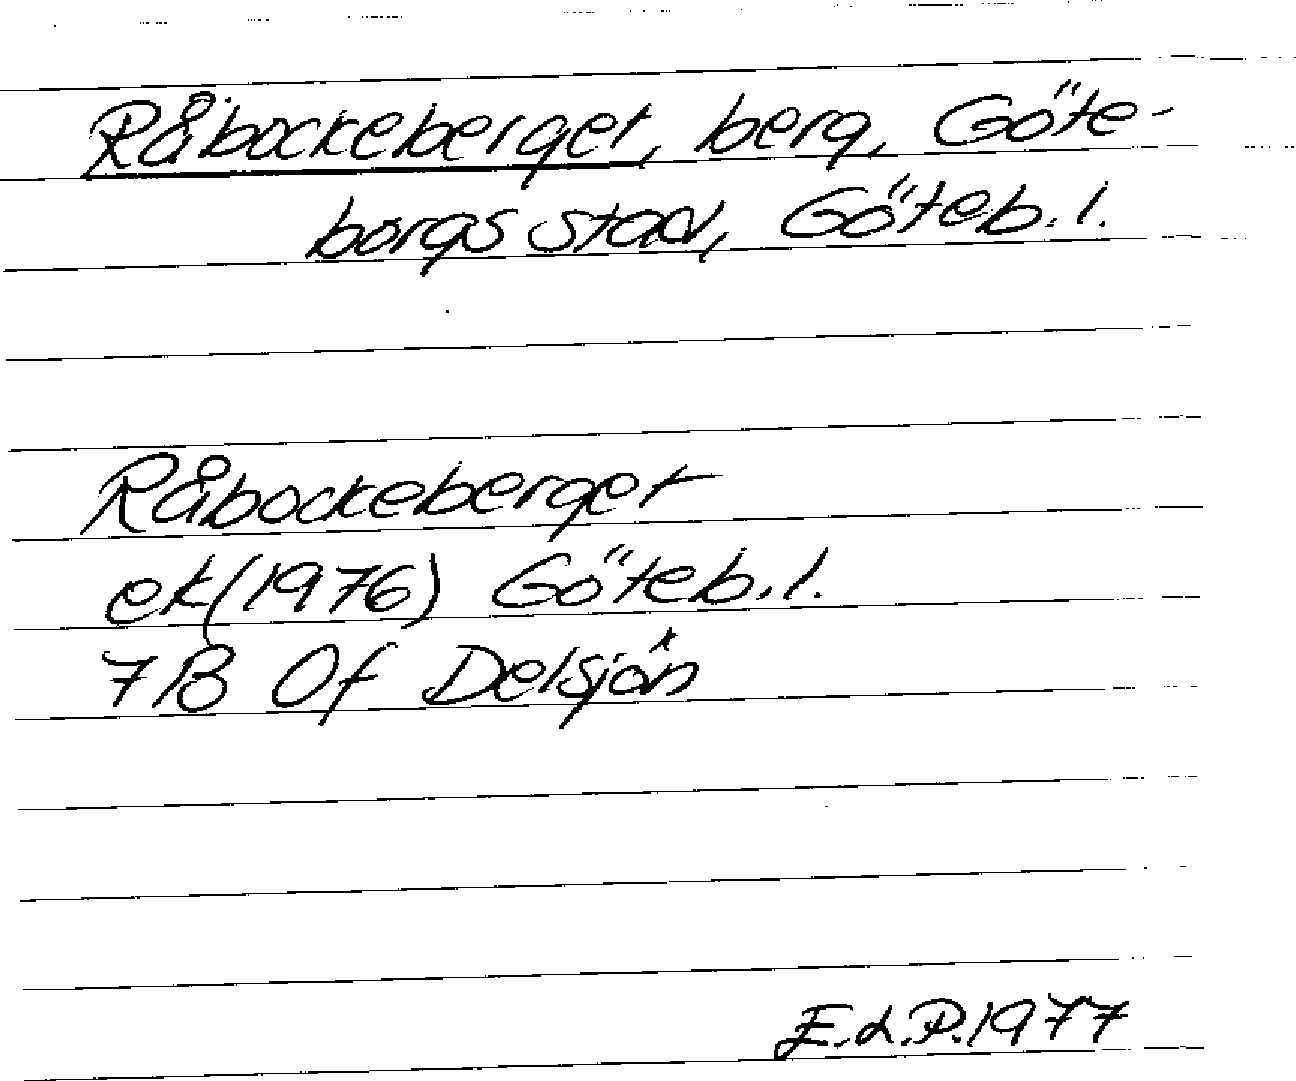 Råbockeberget, berg, Göte-
borgs stad, Göteb. l.
Råbockeberget
ek (1976) Göteb. l.
7B Of Delsjön
E.d.P. 1977